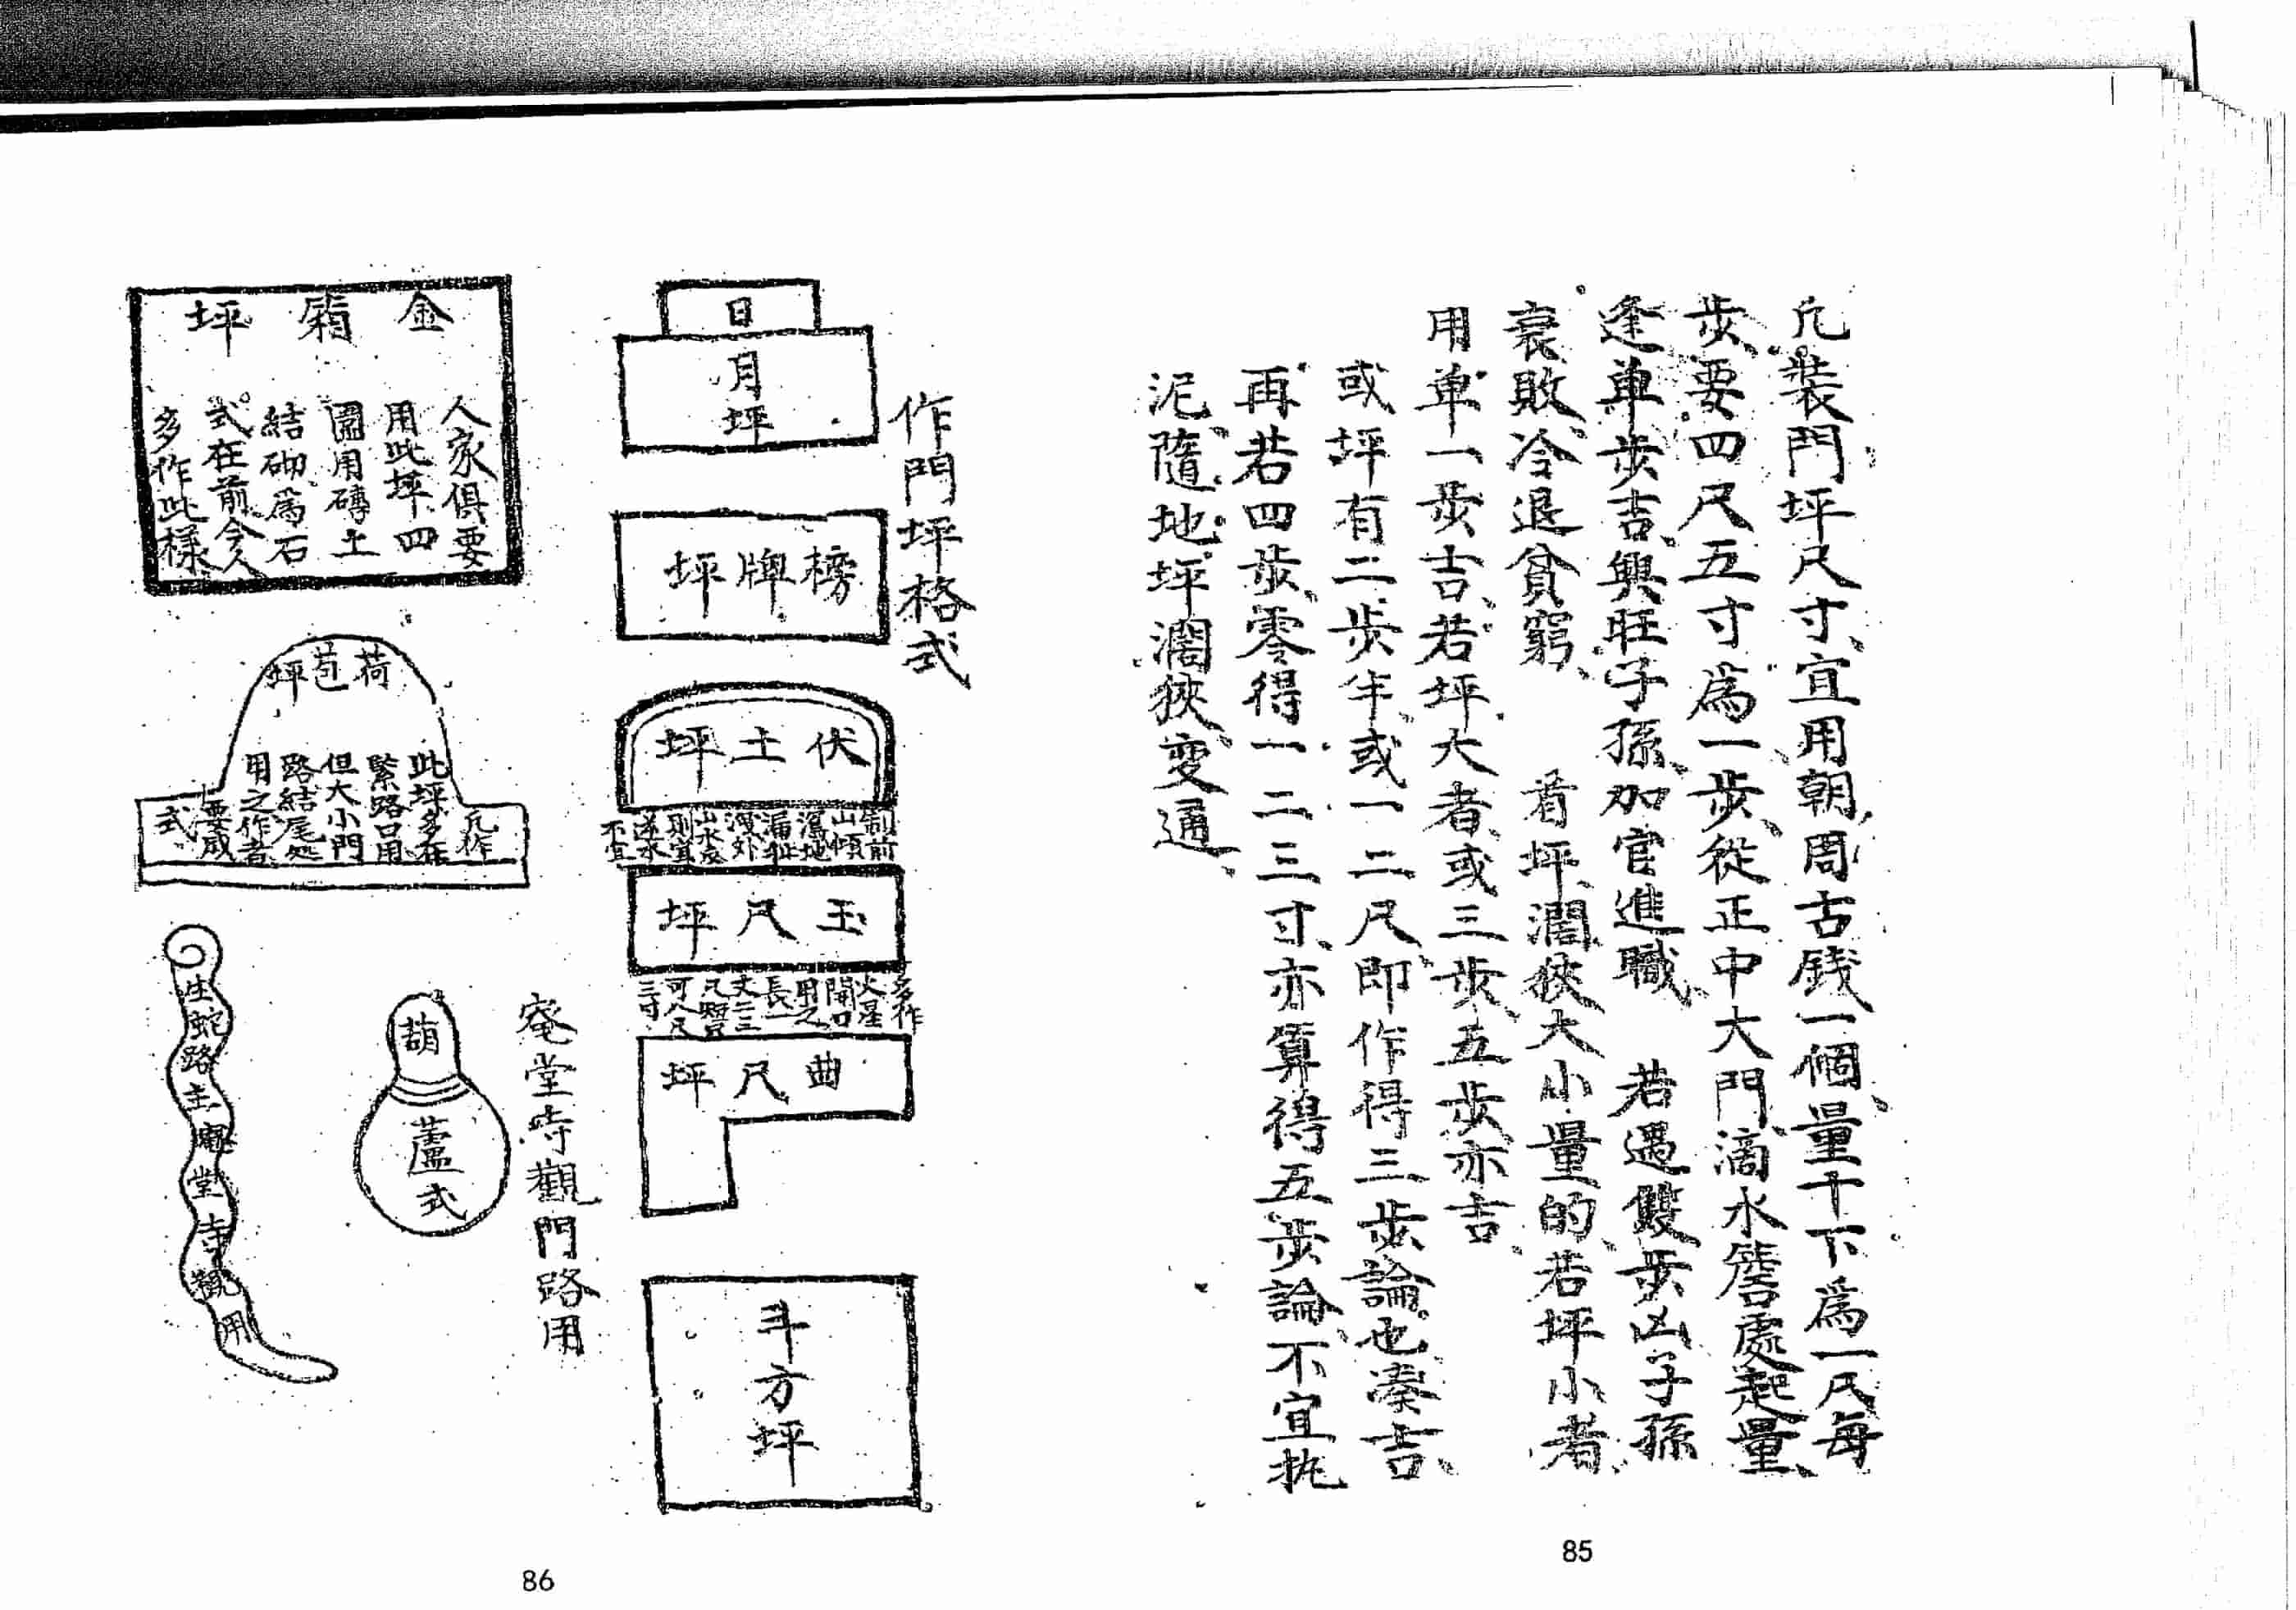 凢裝門坪尺寸宜用朝周古銭一個量十下爲一尺每
步要四尺五寸爲一步從正中大門滴水簷處起量
逢单步吉興旺子孫加官進職　若遇雙步凶子孫
衰敗冷退貧窮　看坪濶狹大小量的若坪小者
用单一步吉若坪大者或三步五步亦吉
或坪有二步半或一二尺即作得三步論也湊吉
再若四步零得一二三寸亦算得五步論不宜执
泥隨地坪濶狹变通
85
作門坪格式
日
月坪
榜牌坪
伏土坪
制前
山傾
瀉地
漏
洩外
山水
則宜
逆水
不宜
玉尺坪
多作
火星
開口
用之
長一
丈二三
尺
可八尺
三寸
曲尺坪
斗方坪
金厢坪
人家俱要
用此坪四
圍用磚土
結砌爲石
式在前今人
多作此樣
荷苞坪
凢作
此坪多在
緊路口用
但大小門
路結尾処
用之作者
要成
式
菴堂寺觀門路用
葫蘆式
生蛇路主庵堂寺觀用
86